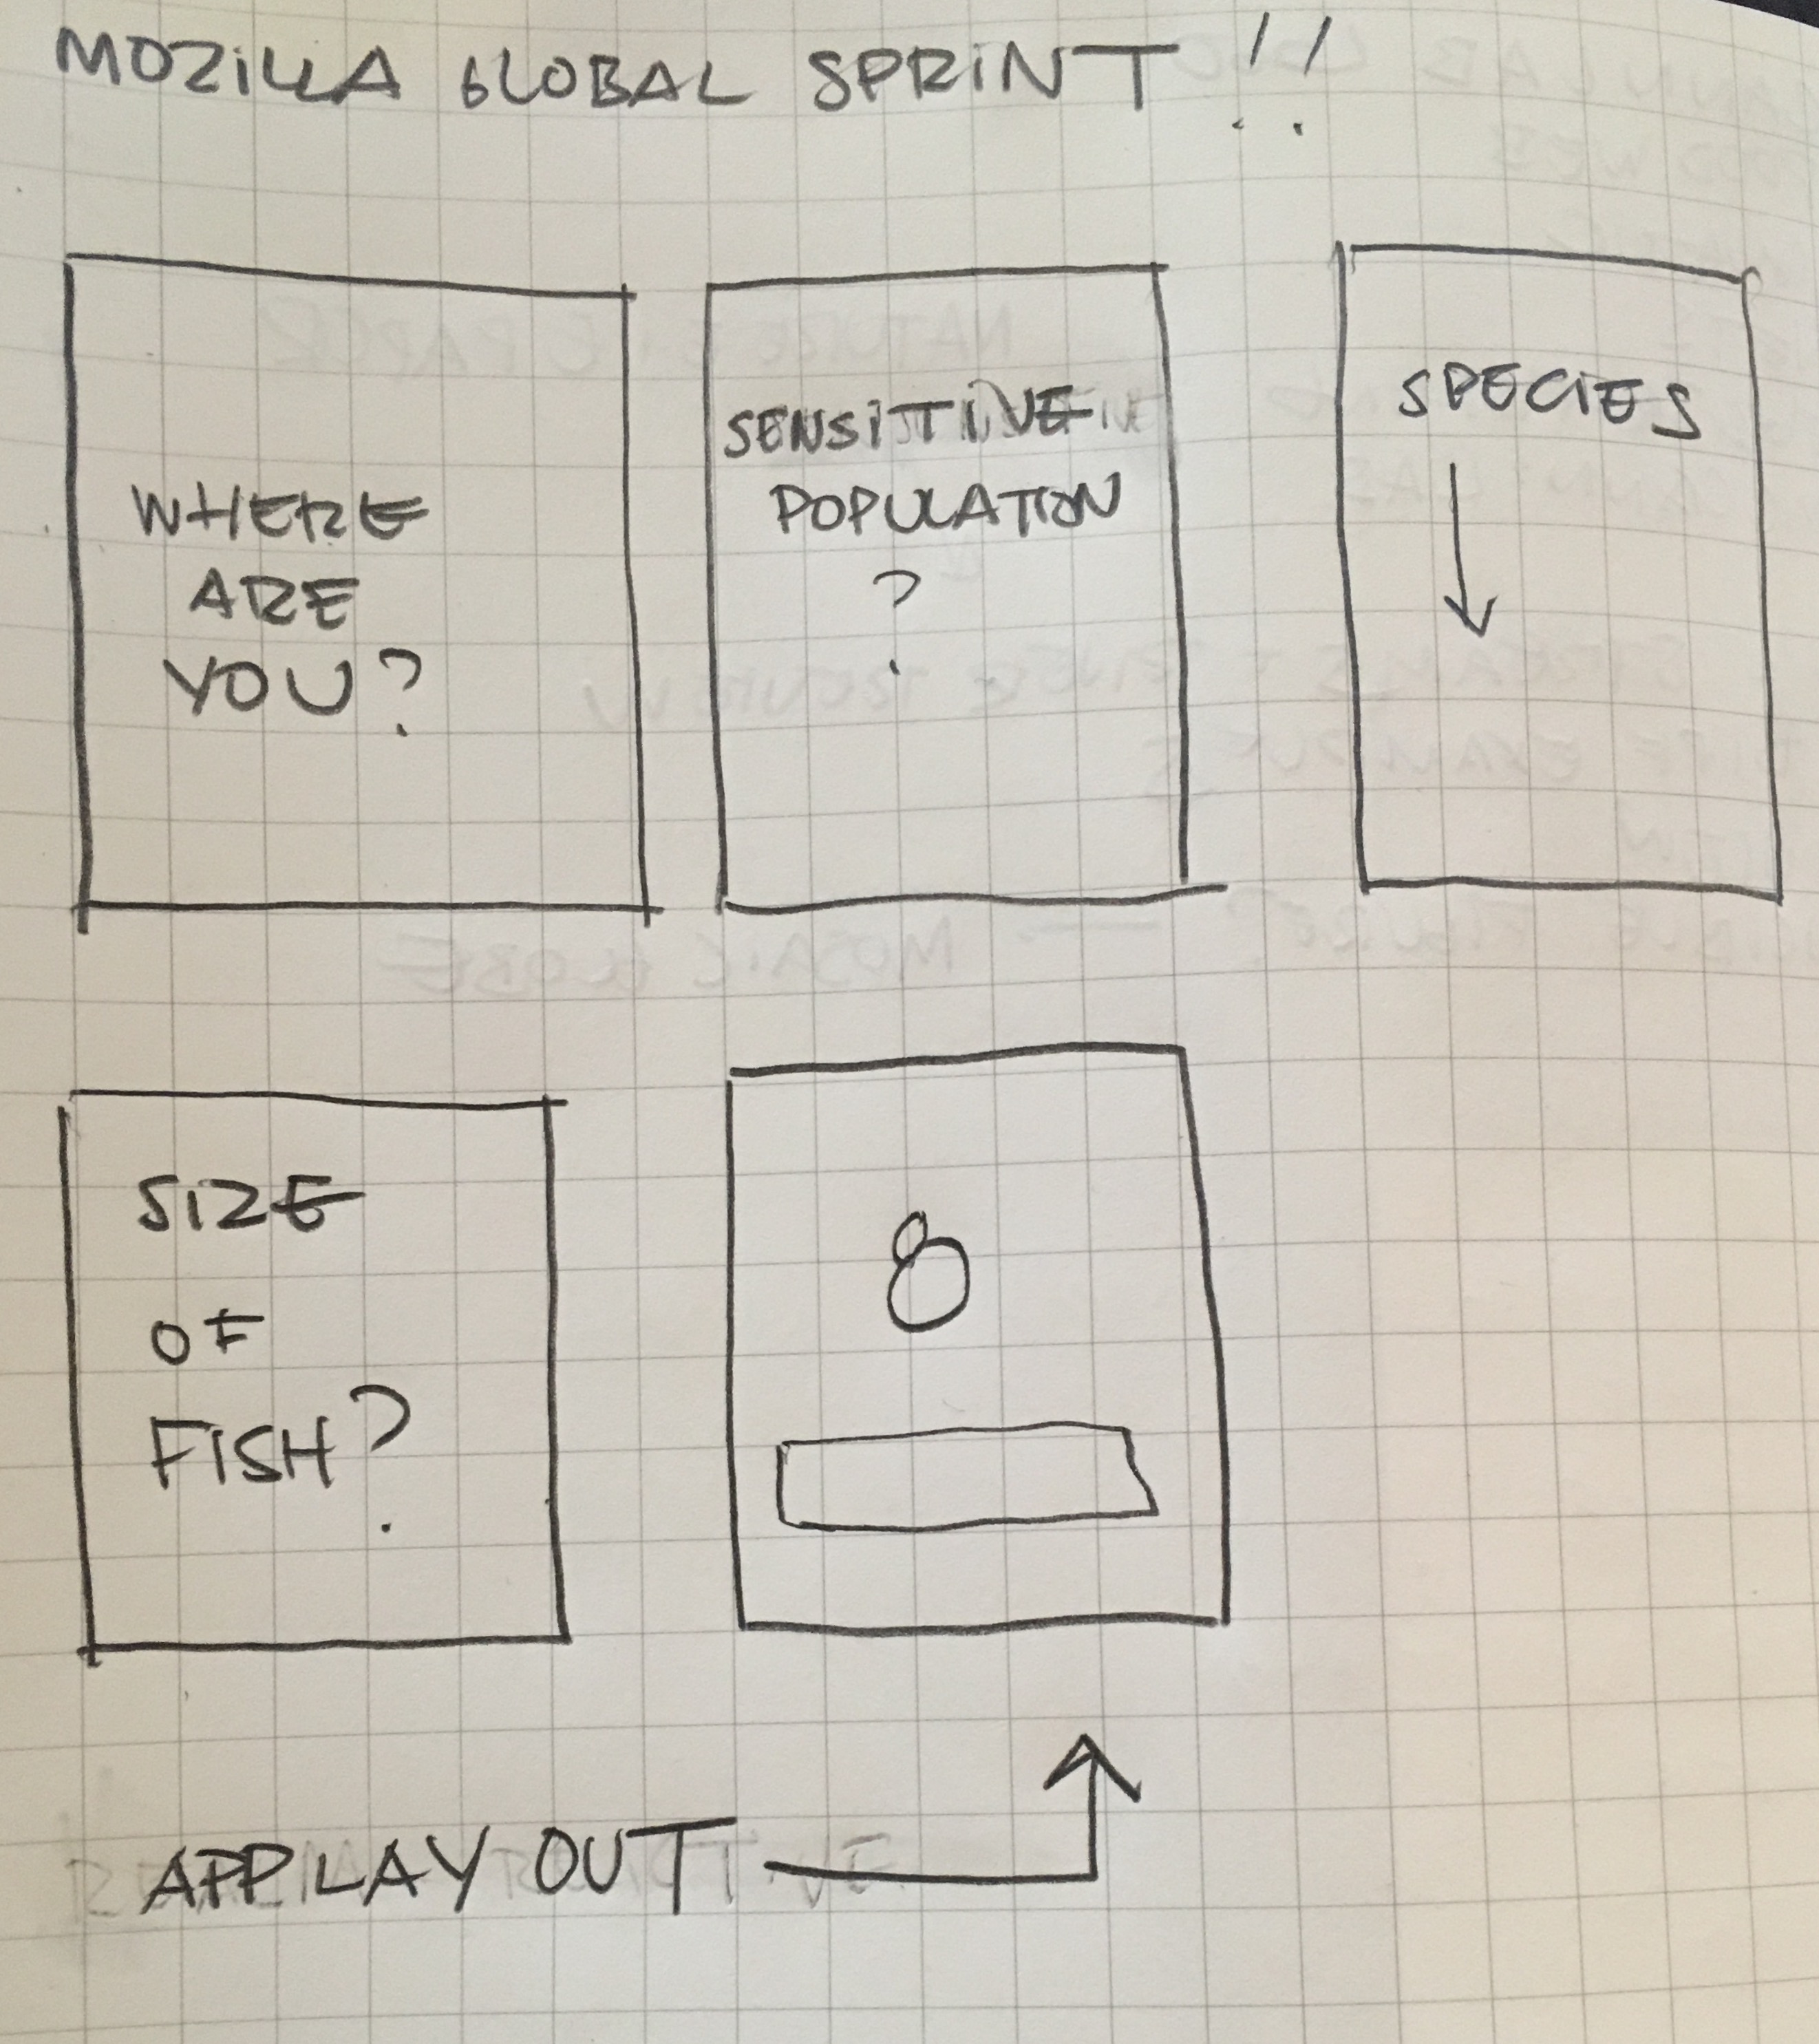 MOZILLA GLOBAL SPRINT!!
WHERE
ARE
YOU?
SENSITIVE
POPULATION
?
SPECIES
SIZE
OF
FISH?
8
APP LAYOUT